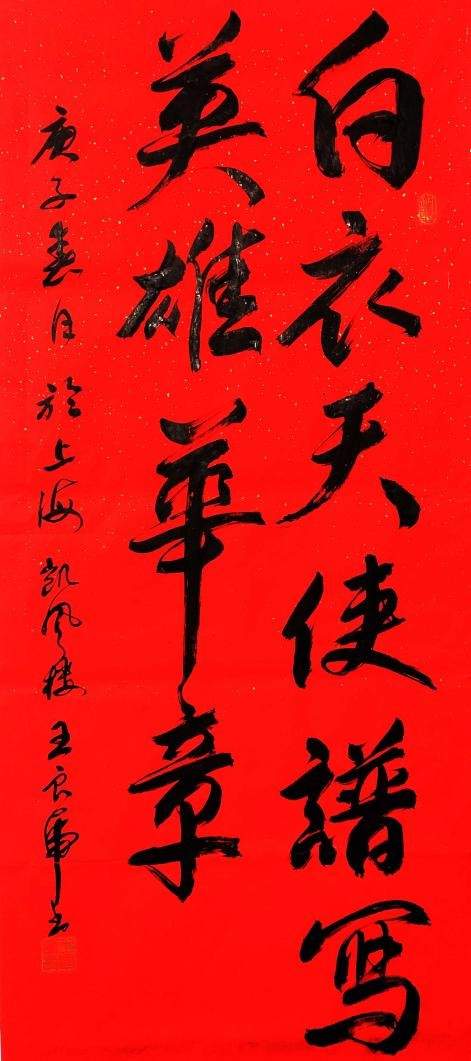 白衣天使譜寫
英雄華章
庚子春日於上海凱風樓王良虎书